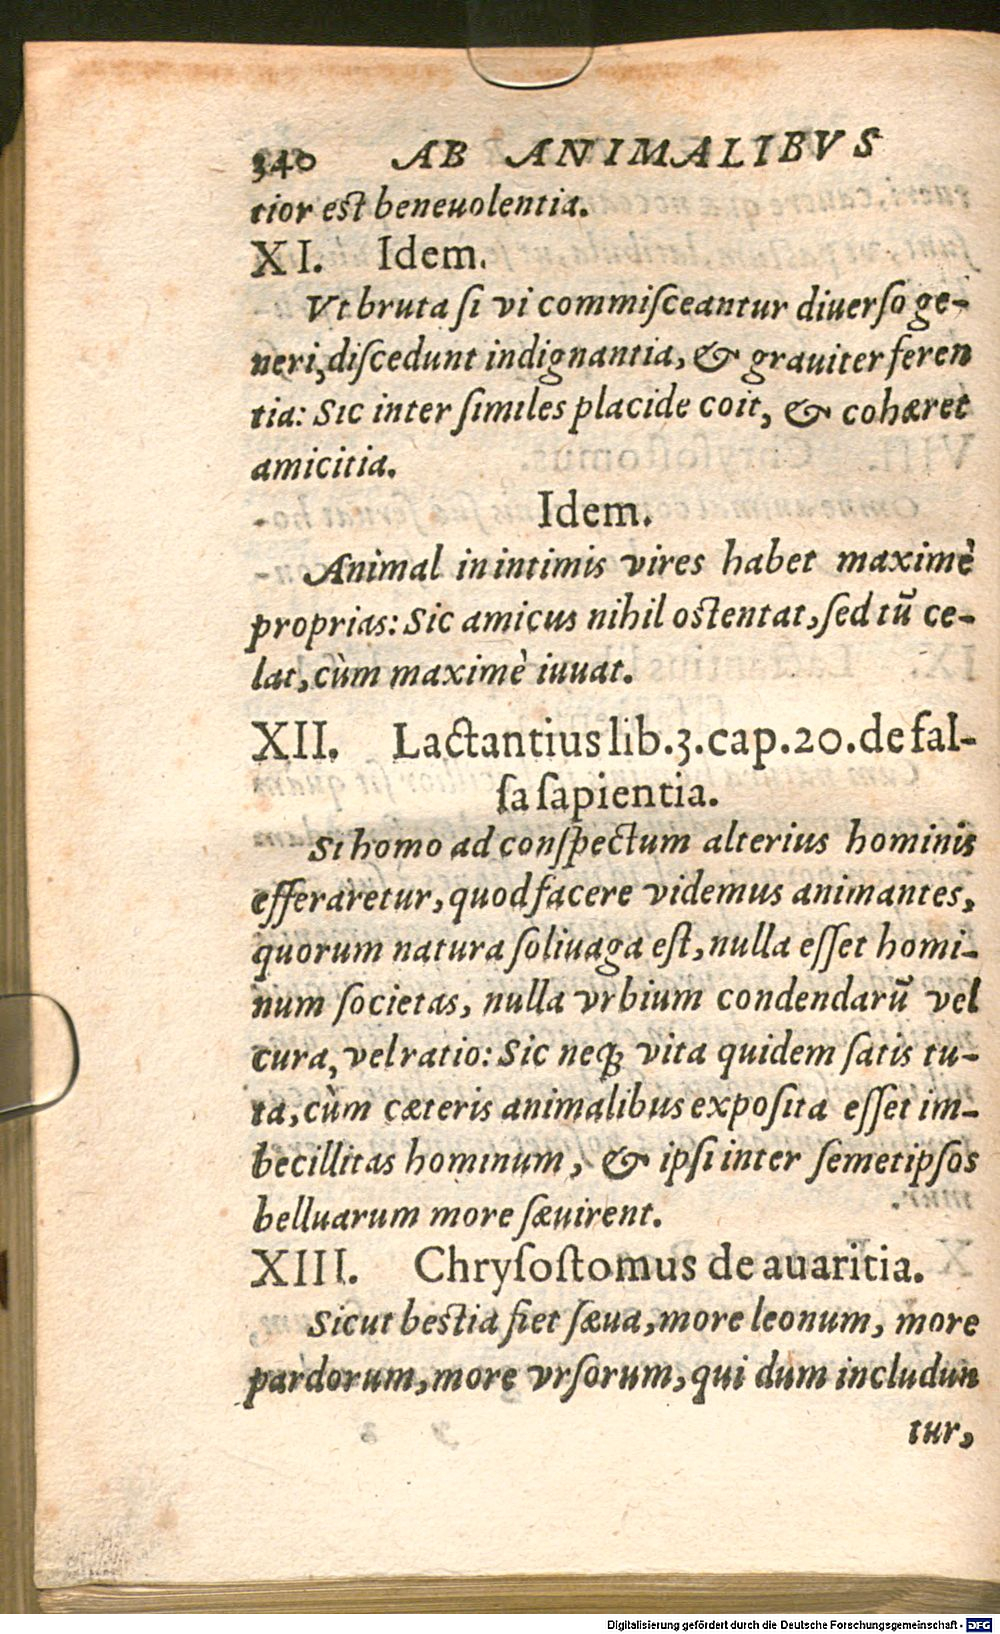 340 AB ANIMALIBVS
tior est beneuolentia.
XI. Idem.
Vt bruta ſi vi commiſceantur diuerſo ge-
neri, diſcedunt indignantia, & grauiter feren
tia: Sic inter ſimiles placide coit, & cohæret
amicitia.
Idem.
Animal in intimis vires habet maximè
proprias: Sic amicus nihil ostentat, ſed tū ce-
lat, cùm maximè iuuat.
XII. Lactantius lib. 3. cap. 20. de fal-
ſa ſapientia.
Si homo ad conſpectum alterius hominis
efferaretur, quod facere videmus animantes,
quorum natura ſoliuaga eſt, nulla eſſet homi-
num ſocietas, nulla vrbium condendarū vel
cura, vel ratio: Sic neq; vita quidem ſatis tu-
ta, cùm cæteris animalibus expoſita eſſet im-
becillitas hominum, & ipſi inter ſemetipſos
belluarum more ſæuirent.
XIII. Chryſoſtomus de auaritia.
Sicut bestia fiet ſæua, more leonum, more
pardorum, more vrſorum, qui dum includun
tur,
Digitalisierung gefördert durch die Deutsche Forschungsgemeinschaft - DFG